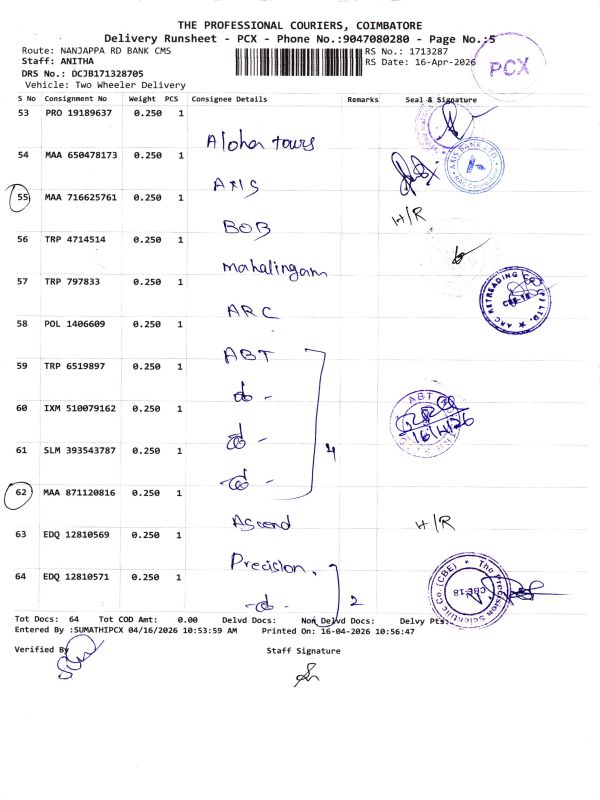 THE PROFESSIONAL COURIERS, COIMBATORE
Delivery Runsheet - PCX - Phone No.:9047080280 - Page No.:5
Route: NANJAPPA RD BANK CMS
RS No.: 1713287
Staff: ANITHA
RS Date: 16-Apr-2026
PCX
DRS No.: DCJB171328705
Vehicle: Two Wheeler Delivery
S No Consignment No Weight PCS Consignee Details Remarks Seal & Signature
53 PRO 19189637 0.250 1 Aloha tours
54 MAA 650478173 0.250 1 AXIS
AXIS BANK LTD.
55 MAA 716625761 0.250 1 BOB H/R
56 TRP 4714514 0.250 1 Mahalingam
57 TRP 797833 0.250 1 ARC
ARC RETREADING CO. (P) LTD.
CBE-18
58 POL 1406609 0.250 1 ABT
59 TRP 6519897 0.250 1 do -
ABT
16/4/26
60 IXM 510079162 0.250 1 do -
61 SLM 393543787 0.250 1 do - 4
62 MAA 871120816 0.250 1 Ascend H/R
63 EDQ 12810569 0.250 1 Precision.
64 EDQ 12810571 0.250 1 do - 2
The Precision Scientific Co. (CBE)
CBE-18
Tot Docs: 64 Tot COD Amt: 0.00 Delvd Docs: Non Delvd Docs: Delvy Pts:
Entered By :SUMATHIPCX 04/16/2026 10:53:59 AM Printed On: 16-04-2026 10:56:47
Verified By Staff Signature